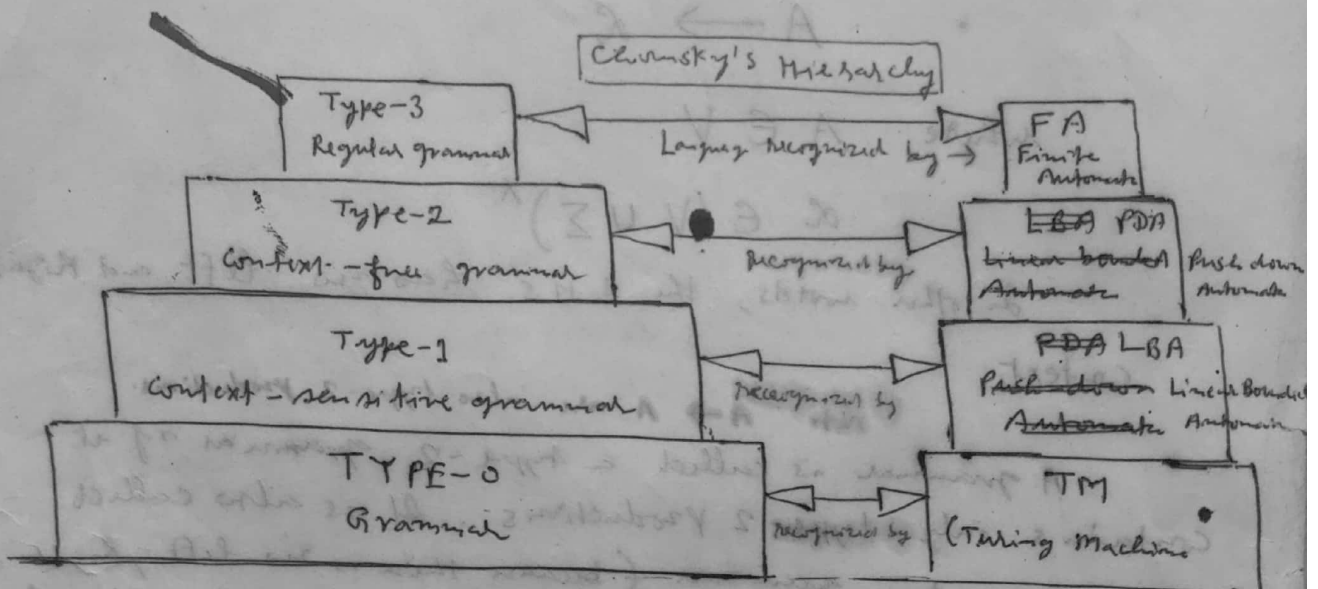 Chomsky's Hierarchy
Type-3
Regular grammar
Language recognized by →
FA
Finite
Automata
Type-2
Context-free grammar
recognized by
LBA PDA
Linear bounded Push down
Automata Automata
Type-1
Context-sensitive grammar
recognized by
PDA LBA
Push down Linear Bounded
Automata
TYPE-0
Grammar
recognized by
TM
(Turing Machine